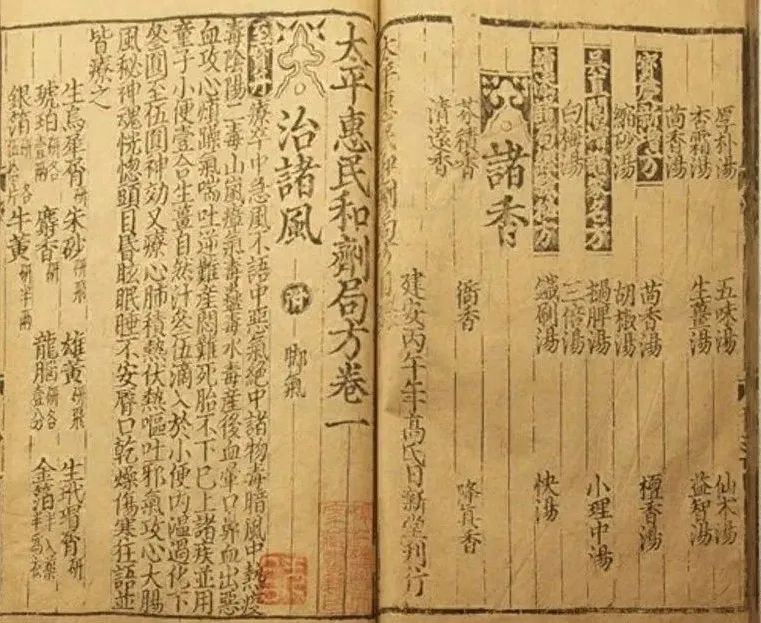 厚朴湯 五味湯 仙朮湯
杏霜湯 生薑湯 益智湯
茴香湯
寶慶新增方 茴香湯 檀香湯
縮砂湯 胡椒湯
吳直閣增諸家名方 撾脾湯 小理中湯
白梅湯 三倍湯
續添諸局經驗秘方 鐵刷湯 快湯
諸香
芬積香 衙香 降真香
清遠香
建安丙午年高氏日新堂刊行
太平惠民和劑局方目錄
太平惠民和劑局方卷一
治諸風 附 脚氣
療卒中急風不語中惡氣絕中諸物毒暗風中熱疫
毒陰陽二毒山嵐瘴氣毒蠱毒水毒產後血暈口鼻血出惡
血攻心煩躁氣喘吐逆難產悶亂死胎不下已上諸疾並用
童子小便壹合生薑自然汁叁伍滴入於小便內溫過化下
叁圓至伍圓神効又療心肺積熱伏熱嘔吐邪氣攻心大腸
風秘神魂恍惚頭目昏眩眠睡不安脣口乾燥傷寒狂語並
皆療之
生烏犀屑 朱砂研飛 雄黃研飛 生玳瑁屑研
琥珀研各壹兩 麝香研 龍腦研各壹分 金箔半入藥
銀箔研 牛黃研半兩